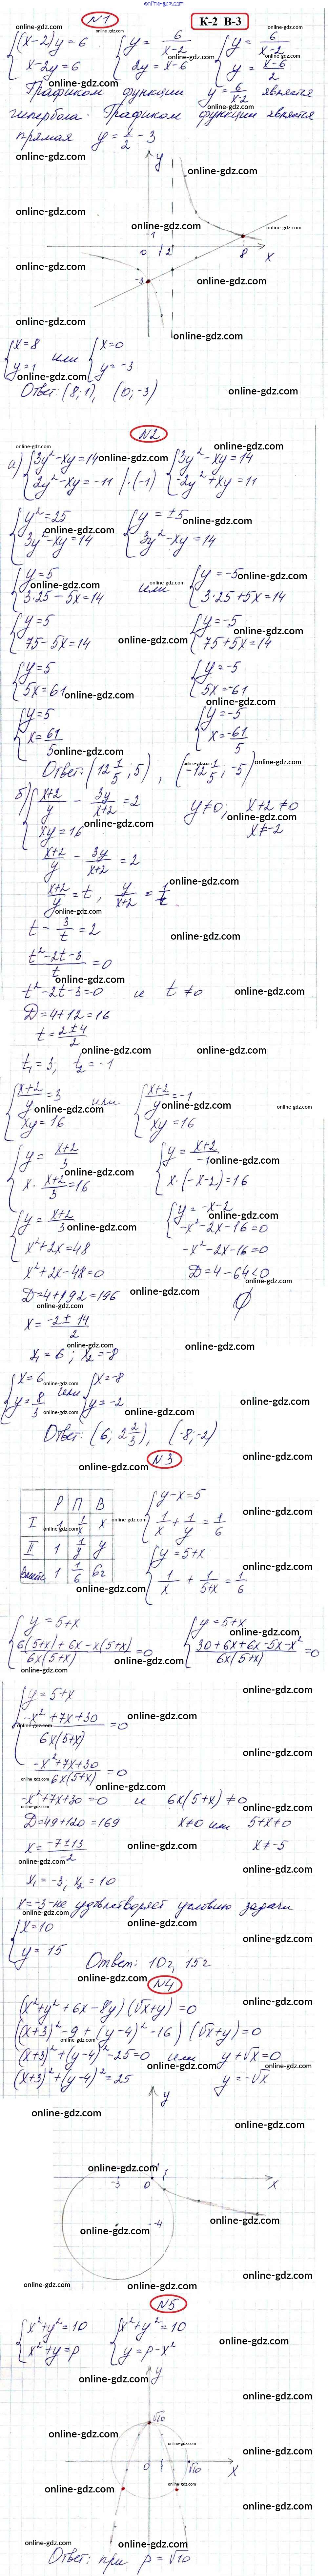 online-gdz.com
№1 К-2 В-3
{(x-2)y=6 {y=6/(x-2) {y=6/(x-2)
{x-2y=6 {2y=x-6 {y=(x-6)/2
Графиком функции y=6/(x-2) является
гипербола. Графиком функции является
прямая y=x/2-3
y
1
0 1 2 8 x
-3
{x=8 или {x=0
{y=1 {y=-3
Ответ: (8;1), (0;-3)
№2
а) {3y²-xy=14 {3y²-xy=14
{2y²-xy=-11 /·(-1) {-2y²+xy=11
{y²=25 {y=±5
{3y²-xy=14 {3y²-xy=14
{y=5 или {y=-5
{3·25-5x=14 {3·25+5x=14
{y=5 {y=-5
{75-5x=14 {75+5x=14
{y=5 {y=-5
{5x=61 {5x=-61
{y=5 {y=-5
{x=61/5 {x=-61/5
Ответ: (12 1/5; 5), (-12 1/5; -5)
б) {(x+2)/y - 3y/(x+2)=2 y≠0; x+2≠0
{xy=16 x≠-2
(x+2)/y - 3y/(x+2)=2
(x+2)/y=t, y/(x+2)=1/t
t-3/t=2
(t²-2t-3)/t=0
t²-2t-3=0 и t≠0
D=4+12=16
t=(2±4)/2
t₁=3; t₂=-1
{(x+2)/y=3 или {(x+2)/y=-1
{xy=16 {xy=16
{y=(x+2)/3 {y=(x+2)/-1
{x·(x+2)/3=16 {x·(-x-2)=16
{y=(x+2)/3 {y=-x-2
{x²+2x=48 {-x²-2x-16=0
x²+2x-48=0 -x²-2x-16=0
D=4+192=196 D=4-64<0
x=(-2±14)/2 ∅
x₁=6; x₂=-8
{x=6 или {x=-8
{y=8/3 {y=-2
Ответ: (6; 2 2/3), (-8;-2)
№3
Р П В
I 1 1/x x
II 1 1/y y
вместе 1 1/6 6ч
{y-x=5
{1/x+1/y=1/6
{y=5+x
{1/x+1/(5+x)=1/6
{y=5+x {y=5+x
{(6(5+x)+6x-x(5+x))/6x(5+x)=0 {(30+6x+6x-5x-x²)/6x(5+x)=0
{y=5+x
{(-x²+7x+30)/6x(5+x)=0
(-x²+7x+30)/6x(5+x)=0
-x²+7x+30=0 и 6x(5+x)≠0
D=49+120=169 x≠0 или 5+x≠0
x=(-7±13)/-2 x≠-5
x₁=-3; x₂=10
x=-3-не удовлетворяет условию задачи
{x=10
{y=15
Ответ: 10ч, 15ч
№4
(x²+y²+6x-8y)(√x+y)=0
((x+3)²-9+(y-4)²-16)(√x+y)=0
(x+3)²+(y-4)²-25=0 или y+√x=0
(x+3)²+(y-4)²=25 y=-√x
y
-3 0 1 x
-4
№5
{x²+y²=10 {x²+y²=10
{x²+y=p {y=p-x²
y
√10
0 1 √10 x
Ответ: при p=√10